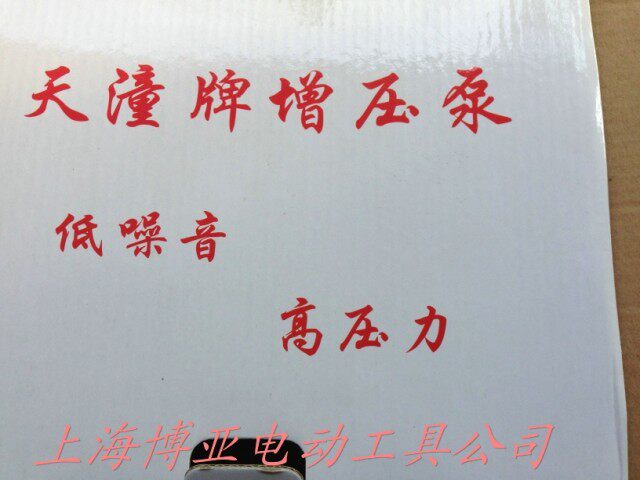 天潼牌增压泵
低噪音
高压力
上海博亚电动工具公司